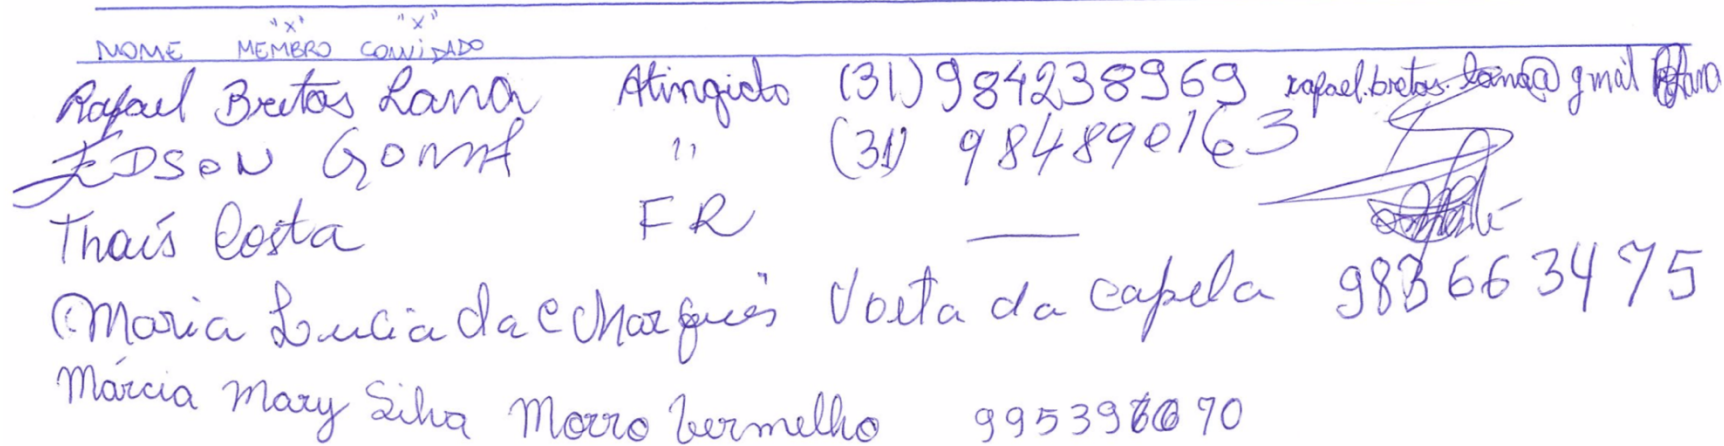 "X" "X"
NOME MEMBRO CONVIDADO
Rafael Bretas Lana Atingido (31) 984238969 rafael.bretas.lana@gmail
EDSON (31) 984890163
Thaís Costa FR —
Maria Lucia da C Marques Volta da Capela 983663475
Márcia Mary Silva Morro Vermelho